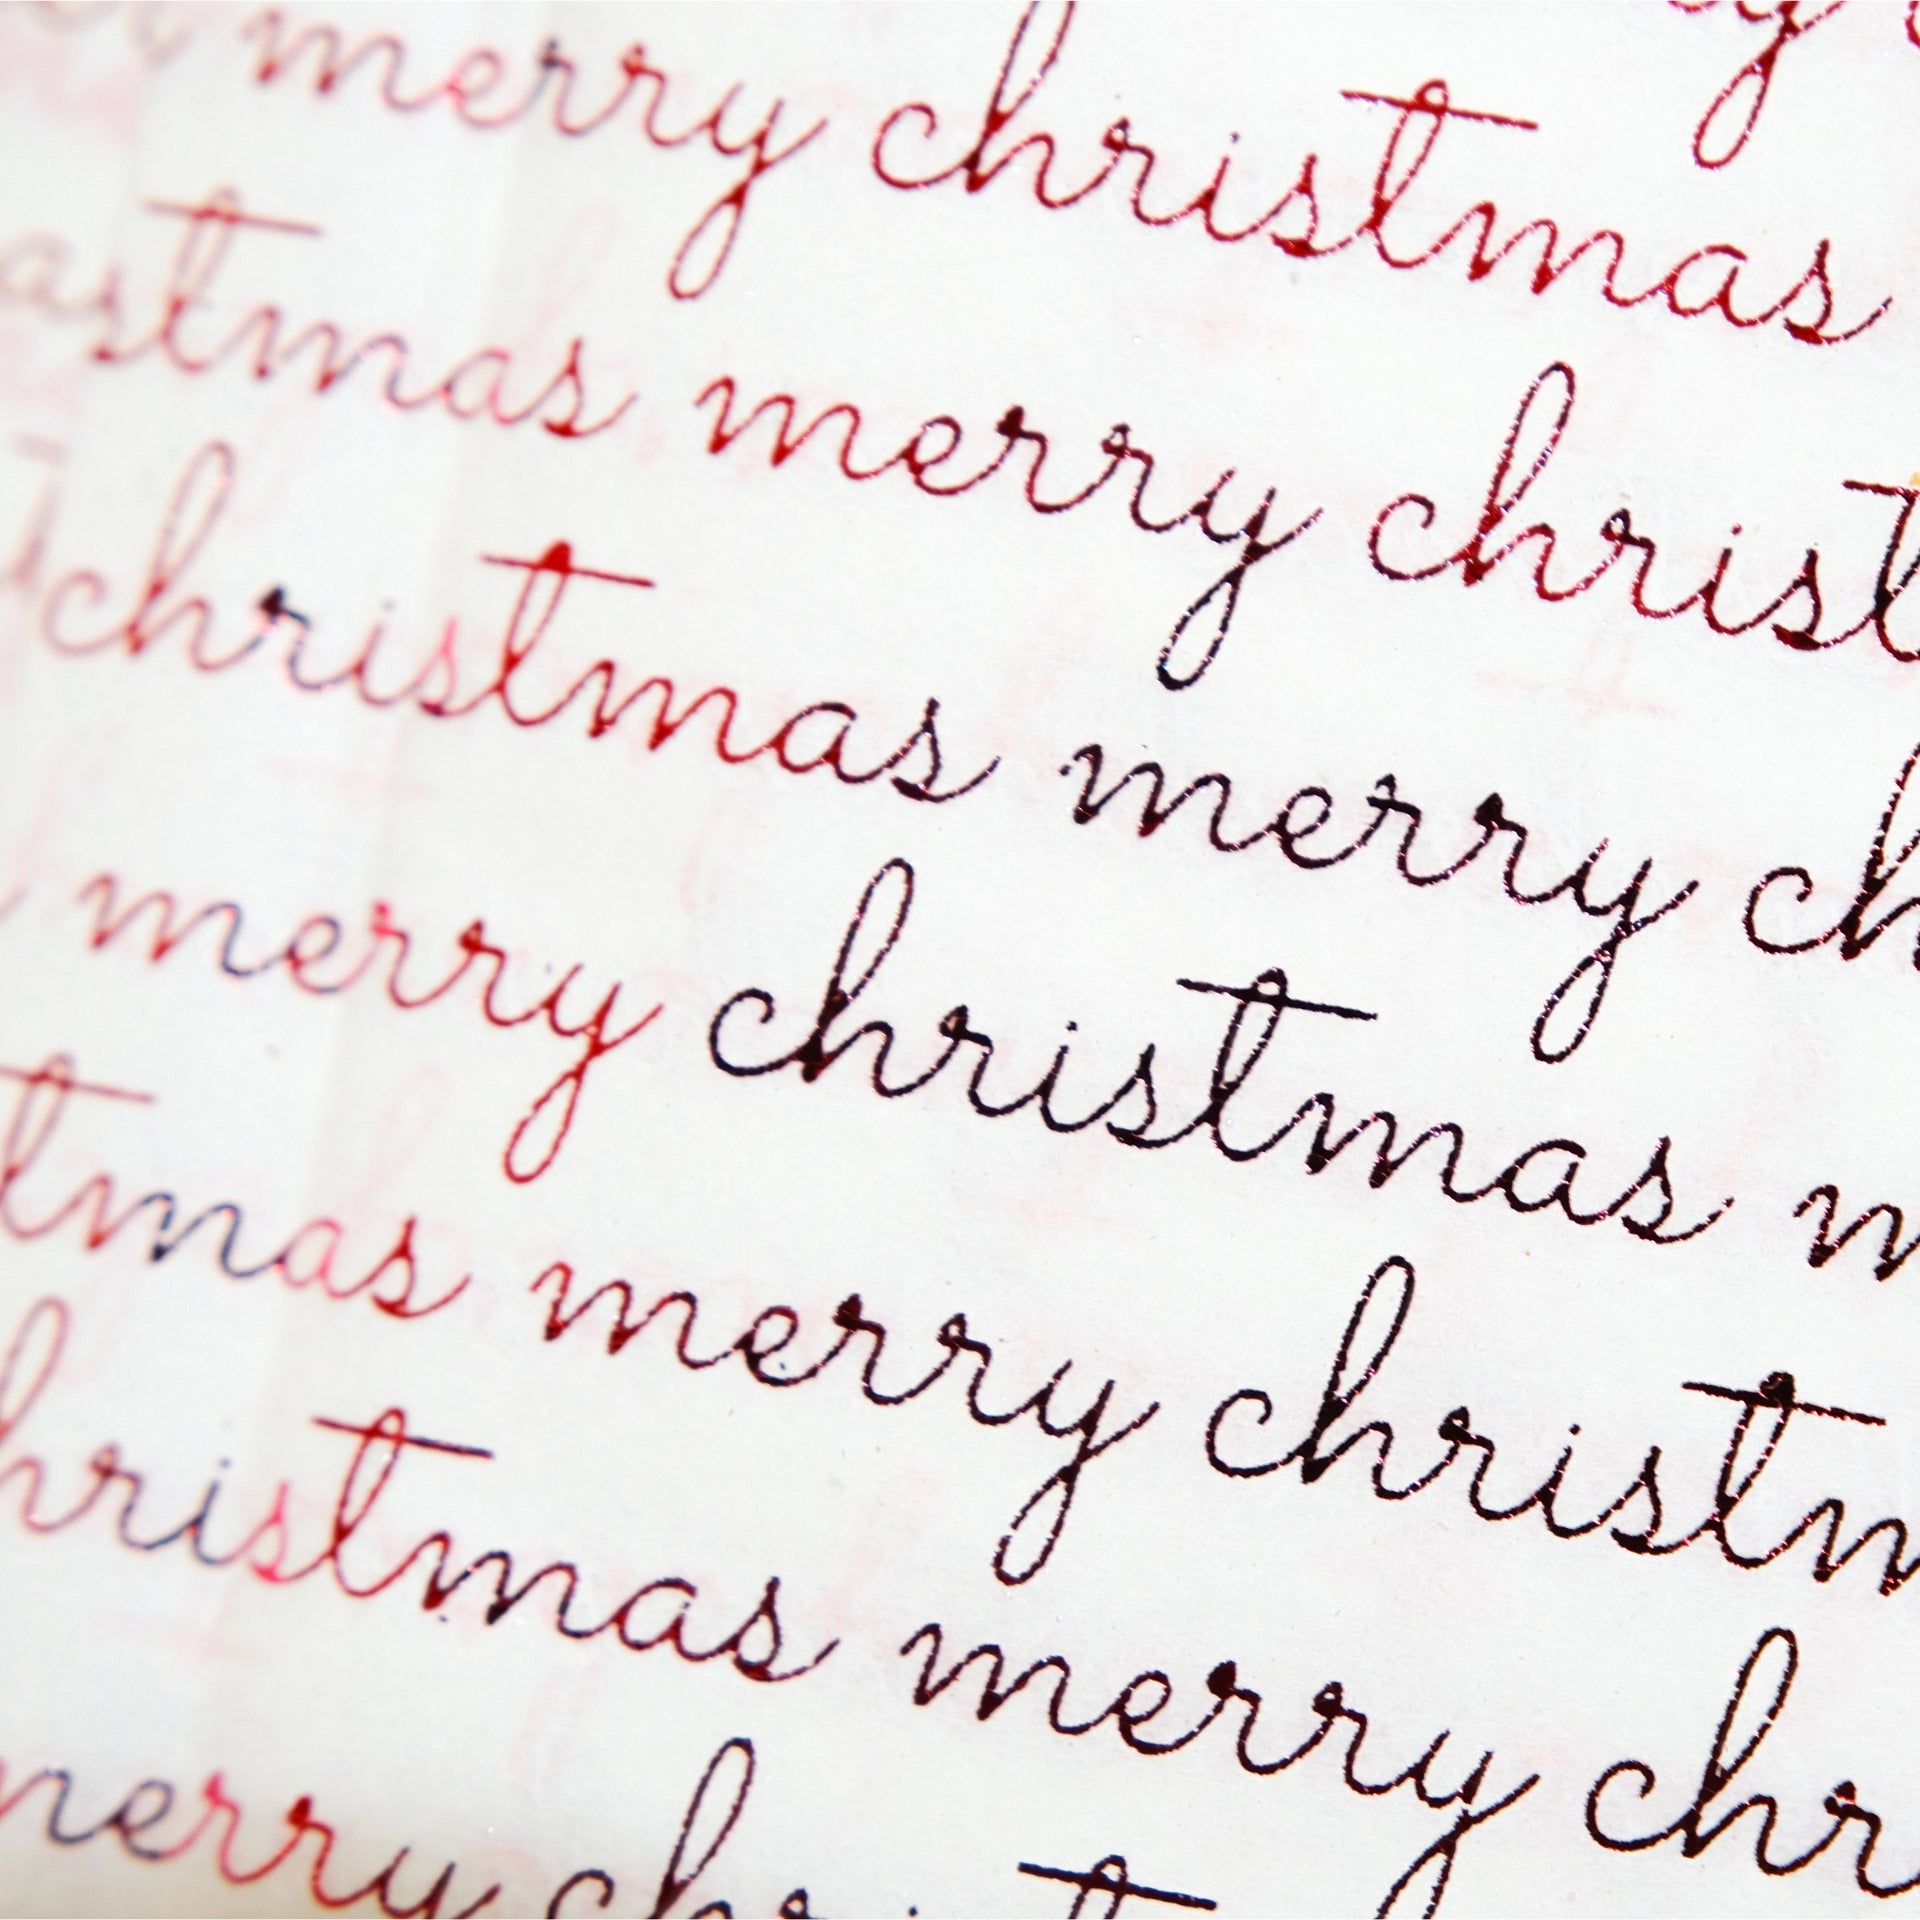 y
merry christmas
astmas merry christ
christmas merry ch
merry christmas m
tmas merry christm
hristmas merry chr
merry christ